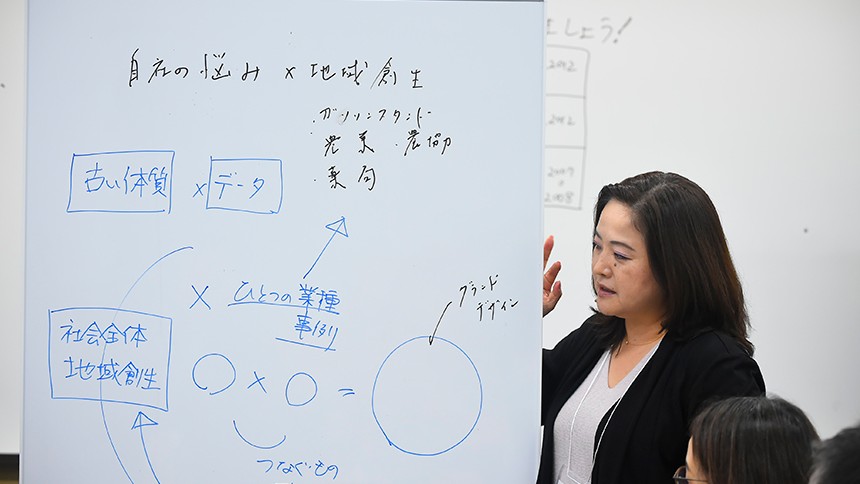 自社の悩み × 地域創生
・ガソリンスタンド
・農業 ・農協
・薬局
古い体質 × データ
× ひとつの業種
事例
社会全体
地域創生
グランド
デザイン
○ × ○ = ○
つなぐもの
ましょう!
2012
2012
2007
2008